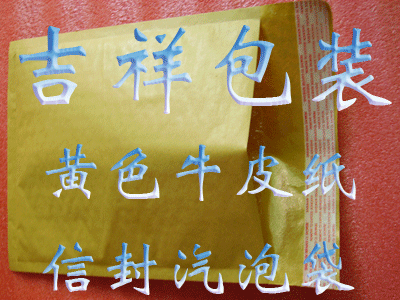 吉祥包装
黄色牛皮纸
信封汽泡袋